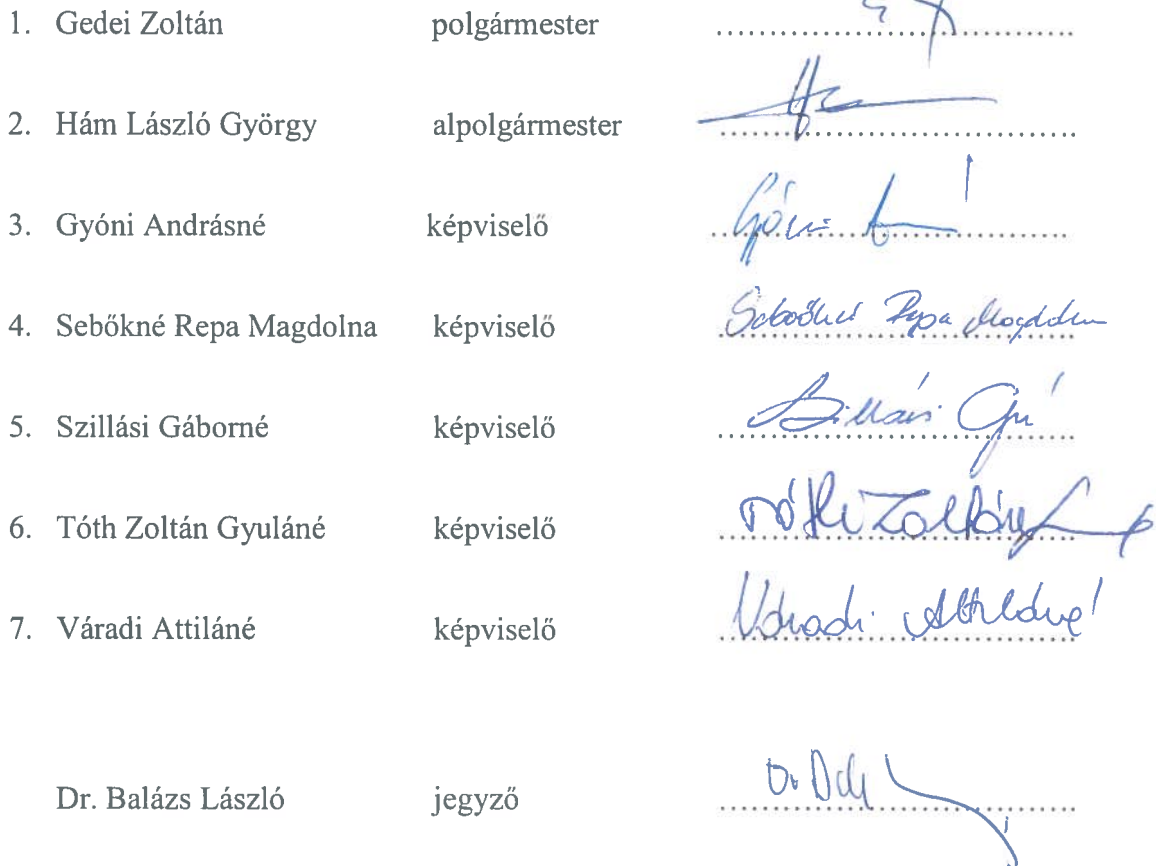 1. Gedei Zoltán polgármester
2. Hám László György alpolgármester
3. Gyóni Andrásné képviselő
4. Sebőkné Repa Magdolna képviselő Sebőkné Repa Magdolna
5. Szillási Gáborné képviselő Szillási Gné
6. Tóth Zoltán Gyuláné képviselő Tóth Zoltán
7. Váradi Attiláné képviselő Váradi Attiláné
Dr. Balázs László jegyző